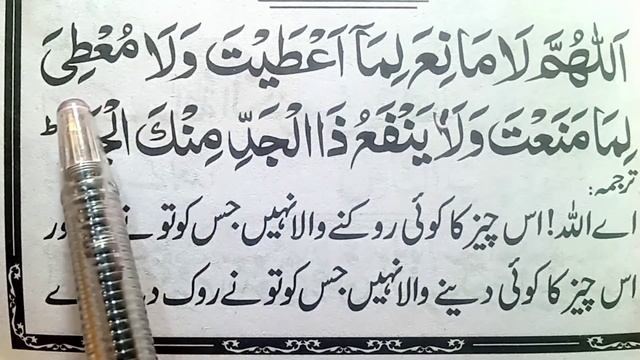 اَللّٰهُمَّ لَا مَانِعَ لِمَآ اَعْطَيْتَ وَلَا مُعْطِیَ
لِمَا مَنَعْتَ وَلَا يَنْفَعُ ذَا الْجَدِّ مِنْكَ
ترجمہ:
اے اللہ! اس چیز کا کوئی روکنے والا نہیں جس کو تو نے
اس چیز کا کوئی دینے والا نہیں جس کو تو نے روک